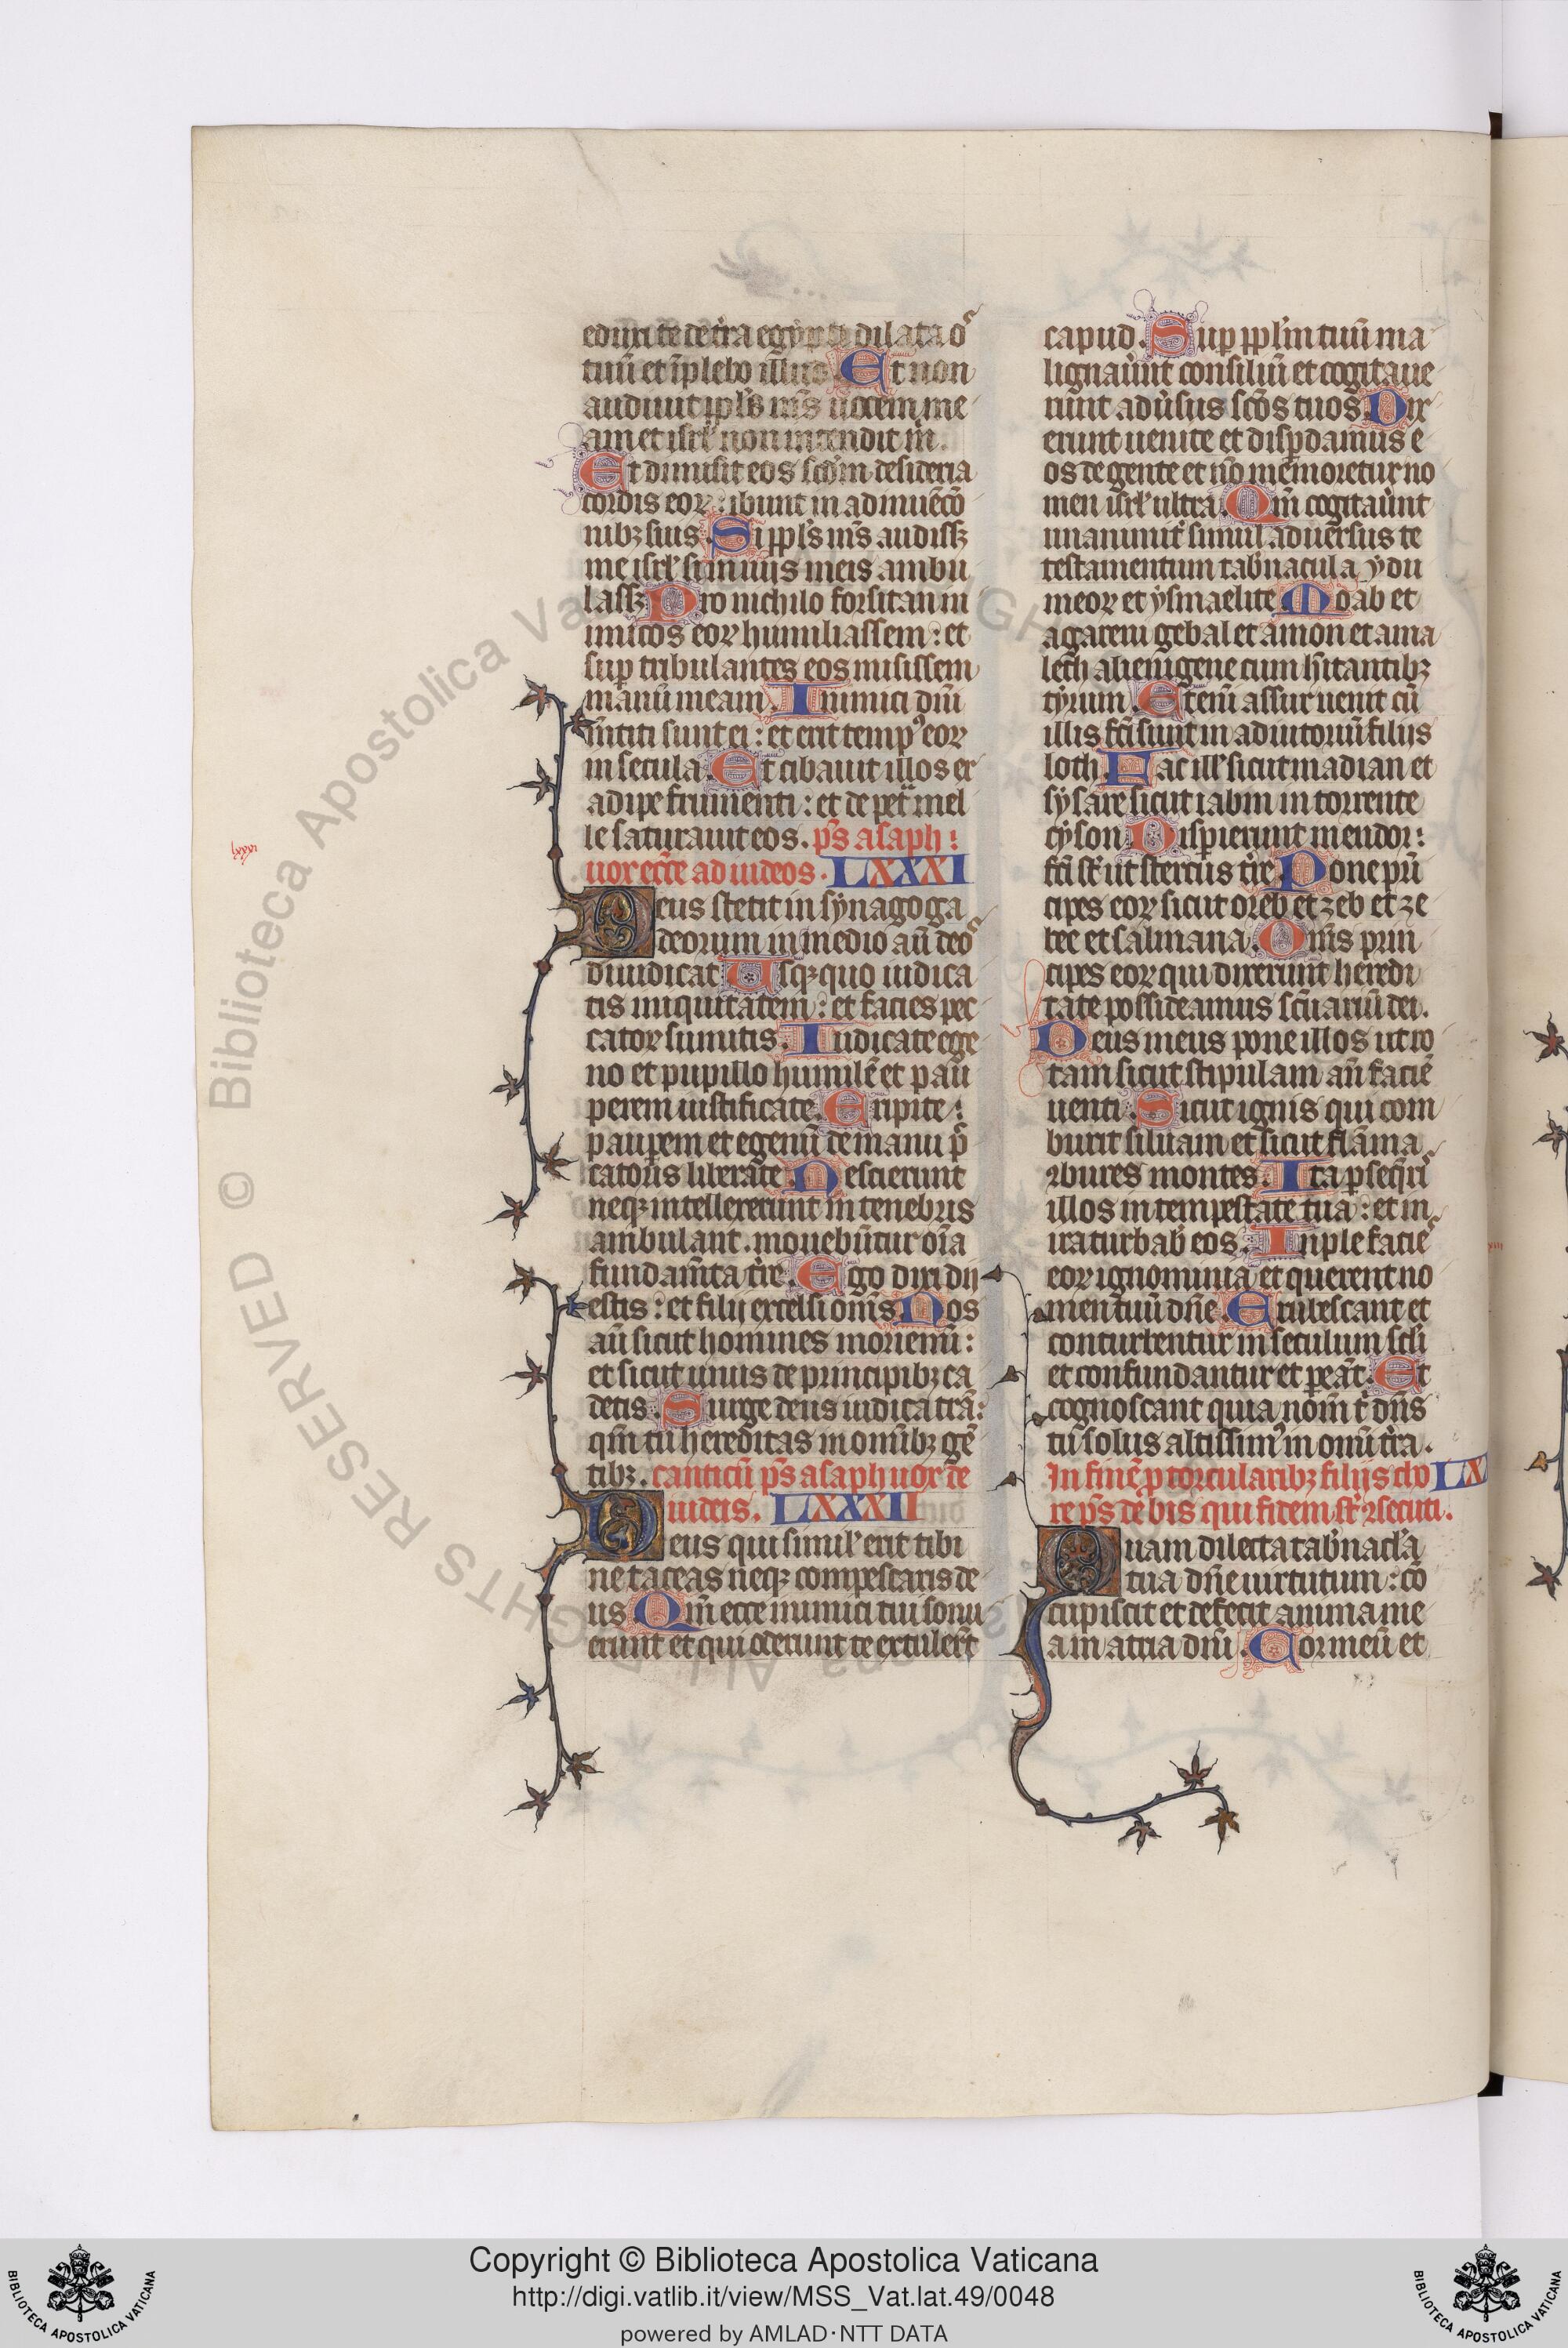 eduxi te de tr̃a egypti dilata os
tuũ et ĩplebo illud. Et non
audiuit ppl's m̃s uocem me
am et isrl' non intendit m̃.
Et dimisit eos scd'm desideria
cordis eoꝝ: ibunt in adinuẽcõ
nibꝫ suis. Si ppl's m̃s audissꝫ
me isrl' si in uiis meis ambu
lassꝫ. Pro nichilo forsitan in
imicos eoꝝ humiliassem: et
sup tribulantes eos misissem
manũ meam. Inimici dñi
m̃titi sunt ei: et erit temp⁹ eoꝝ
in secula. Et cibauit illos ex
adipe frumenti: et de pet̃ mel
le saturauit eos. p̃s asaph:
uox ecc̃e ad iudeos. LXXXI
Deus stetit in synagoga
deorum in medio aũ deo
diiudicat. Usqꝫ quo iudica
tis iniquitatem: et facies pec
catoꝝ sumitis. Iudicate ege
no et pupillo humilẽ et pau
perem iustificate. Eripite:
paupem et egenũ de manu p
catoris liberate. Nescierunt
neqꝫ intellexerunt in tenebris
ambulant. mouebũtur oĩa
fundam̃ta t̃re. Ego dixi dii
estis: et filij excelsi om̃s. Uos
aũ sicut homines moriemĩ:
et sicut unus de principibꝫ ca
detis. Surge deus iudica trã:
qm̃ tu hereditas in omĩbꝫ gẽ
tibꝫ. canticũ p̃s asaph uox de
iudeis. LXXXII
Deus qui simil' erit tibi
ne taceas neqꝫ compescaris de
us. Qm̃ ecce inimici tui sonu
erunt et qui oderunt te extuler̃t
capud. Sup ppl'm tuũ ma
lignauẽnt consiliũ et cogitaue
runt aduẽsus sc̃os tuos. Dix
erunt uenite et dispdamus e
os de gente et nõ memoretur no
men isrl' ultra. Qm̃ cogitauẽnt
unanimit̃ simul aduersus te
testamentum tab̃nacula ydu
meoꝝ et ysmaelite. Moab et
agareni gebal et amon et ama
lech alienigene cum hĩtantibꝫ
tyrum. Etenĩ assur uenit cũ
illis fc̃i sunt in adiutoriũ filijs
loth. Fac ill' sicut madian et
sysare sicut iabin in torrente
cyson. Disperierunt in endor:
fc̃i st̃ ut stercus t̃re. Pone prĩ
cipes eoꝝ sicut oreb et zeb et ze
bee et salmana. Om̃s prin
cipes eoꝝ qui dixerunt heredi
tate possideamus sc̃uariũ dei.
Deus meus pone illos ut ro
tam sicut stipulam añ faciẽ
uenti. Sicut ignis qui com
burit siluam et sicut flãma
ꝯbures montes. Ita psequeri
illos in tempestate tua: et in
ira turbab̃ eos. Inple facie
eoꝝ ignominia et querent no
men tuũ dñe. Erubescant et
conturbentur in seculum scl'i
et confundantur et peãt. Et
cognoscant quia nom̃ t' dñs
tu solus altissim⁹ in omĩ t̃ra.
In finẽ p torcularibꝫ filijs cho LX
re p̃s de his qui fidem st̃ ꝯsecuti.
Quam dilecta tab̃nacl'a
tua dñe uirtutum: cõ
cupiscit et defecit anima me
am atria dñi. Cor meũ et
lxxxi
Copyright © Biblioteca Apostolica Vaticana
http://digi.vatlib.it/view/MSS_Vat.lat.49/0048
powered by AMLAD·NTT DATA